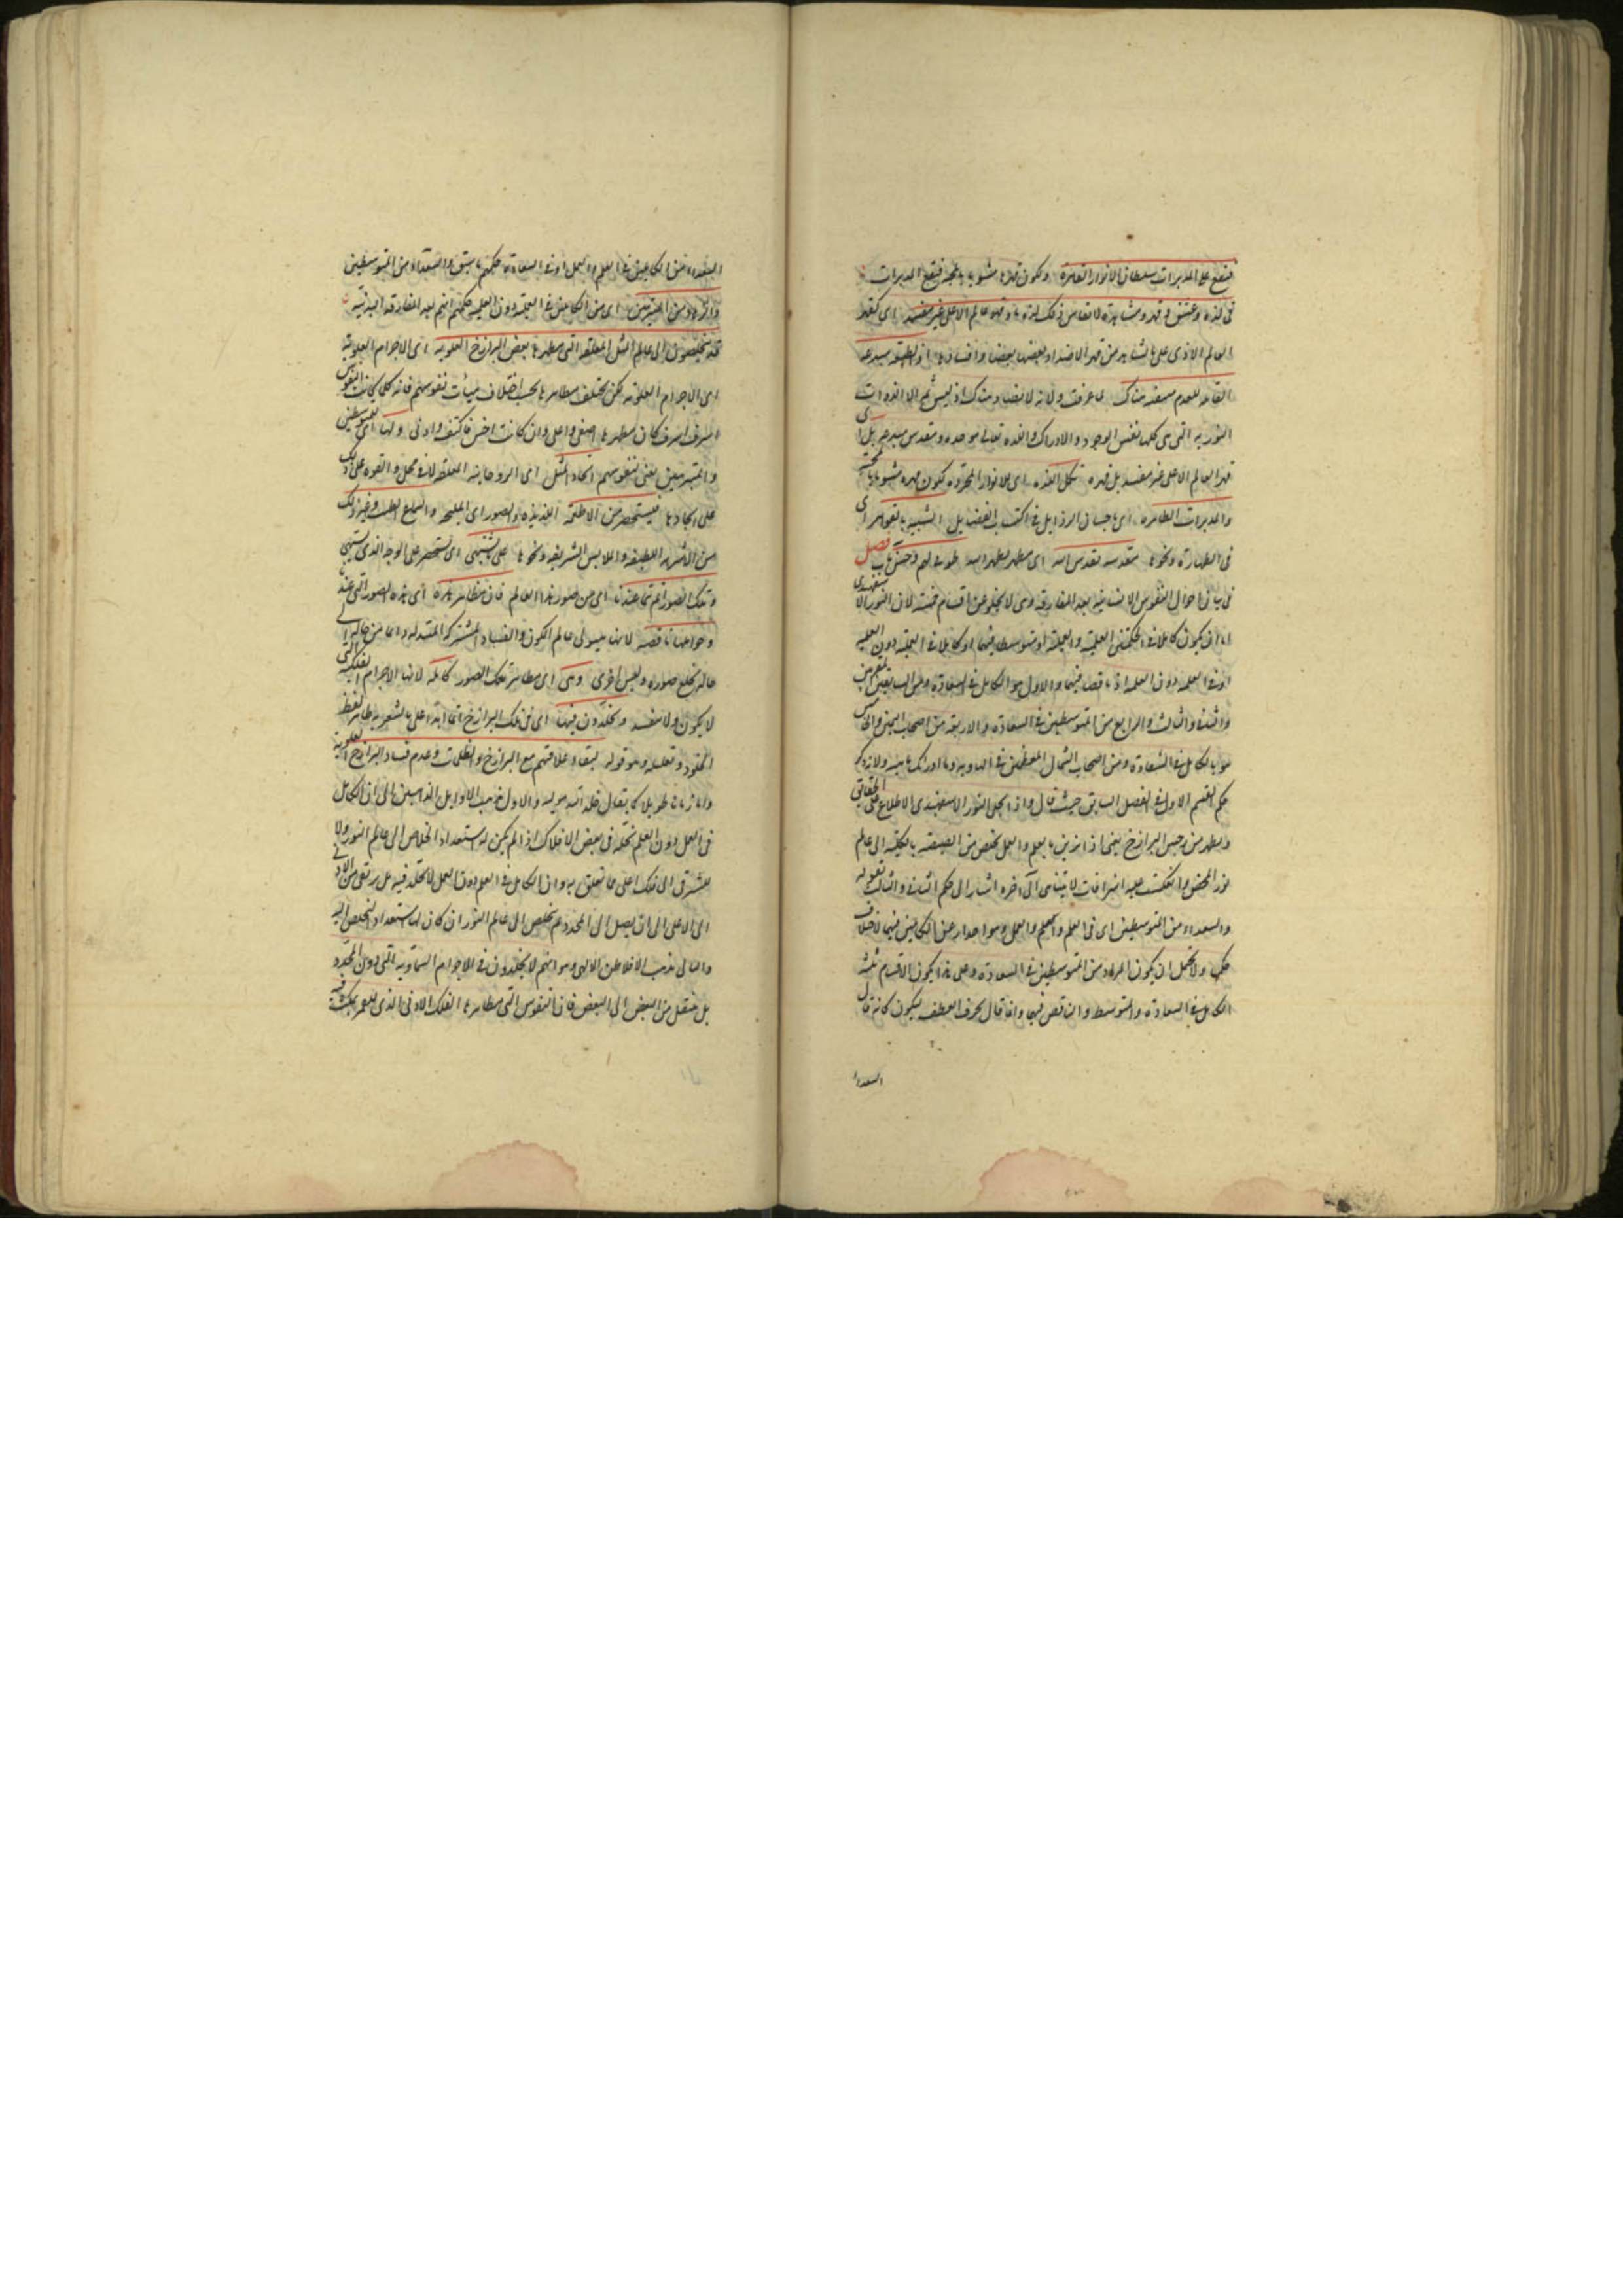 فتقع على المدبرات سلطان الانوار القاهرة ولكون قهرها مشوبا بالمحبة فيقع المدبرات
فى لذة وعشق وقهر ومشاهدة لا تقاس بذلك لذة ما وقهر عالم الاعلى غير مفسد اى كقهر
العالم الادنى على ما نشاهد من قهر الاضداد بعضها بعضا وافسادها اذ الطبيعة
القابلة للعدم منتفية هناك لما عرفت ولانه لا تضاد هناك اذ ليس ثم الا الذوات
النورية التى هى كلها نفس الوجود والادراك واللذة تعالى موجده وتقدس مبدعه بل اى
قهر العالم الاعلى غير مفسد بل قهره تكمل اللذة اى للانوار المجردة لكون قهره مشوبا بالمحبة
والمدبرات الطاهرة اى باجتناب الرذايل فى اكتساب الفضايل الشبيه بالقواهر اى
فى الطهارة ونحوها مقدسة بقدس الله اى مطهر بطهر الله طوبى لهم وحسن مآب فصل
فى بيان احوال النفوس الانسانية بعد المفارقة وهى لا يخلو عن اقسام خمسة لان النور الاسفهبدى
اما ان يكون كاملا فى الحكمتين العلمية والعملية او متوسطا فيهما او كاملا فى العملية دون العلمية
او فى العلمية دون العملية او ناقصا فيهما والاول هو الكامل فى السعادة ومن السابقين المقربين
والثانى والثالث والرابع من المتوسطين فى السعادة والاربعة من اصحاب اليمين والخامس
هو الكامل فى الشقاوة ومن اصحاب الشمال المقيمين فى الهاوية وما ادراك ما هيه ولما ذكر
حكم القسم الاول فى الفصل السابق حيث قال واذا تجلى النور الاسفهبدى الاطلاع على الحقايق
ويطهر من رجس البرازخ يعنى اذا تزين بالعلم والعمل تخلص من الصيصية بالكلية الى عالم
نور المحض وانعكست عليه اشراقات لا يتناهى الى اخره اشار الى حكم الثانى والثالث بقوله
والسعداء من المتوسطين اى فى العلم والعمل وهو احتراز عن الكاملين فيهما لاختلاف
حكمهما ولا يحتمل ان يكون المراد من المتوسطين فى السعادة وعلى هذا يكون الاقسام ثلثة
الكامل فى السعادة والمتوسط والناقص فيها وانما قال بحرف العطف ليكون كانه قال
السعداء
السعداء من الكاملين فى العلم والعمل او فى السعادة حكمهم ما سبق والسعداء من المتوسطين
والزهاد من المتنزهين اى من الكاملين فى العملية دون العلمية حكمهم انهم بعد المفارقة البدنية
قد يتخلصون الى عالم المثل المعلقة التى مظهرها بعض البرازخ العلوية اى الاجرام العلوية
اى الاجرام العلوية لكن يختلف مظاهرها بحسب اختلاف هيآت نفوسهم فانه كلما كانت النفوس
اشرف كان مظهرها اصفى واعلى وان كانت اخس فاكثف وادنى ولها اى للمتوسطين
والمتنزهين يعنى لنفوسهم ايجاد المثل اى الروحانية المعلقة لا فى محل والقوة على ذلك
على ايجادها فيستحضر من الاطعمة اللذيذة والصور اى المليحة والسماع الطيب وغير ذلك
من الاشربة اللطيفة والملابس الشريفة ونحوها على ما يشتهى اى يستحضر على الوجه الذى يشتهى
وتلك الصور اتم مما عندنا اى من صور هذا العالم فان مظاهر هذه اى هذه الصور التى عندنا
وحواملها ناقصة لانها هيولى عالم الكون والفساد المشتركة المتبدلة دايما من حالة الى
حالة بخلع صورة ولبس اخرى وهى اى مظاهر تلك الصور كاملة لانها الاجرام الفلكية التى
لا يكون ولا يفسد ويخلدون فيها اى فى تلك البرازخ انما ابدا على ما يشعر به ظاهر لفظ
الخلود وتعليله وهو قوله لبقاء علاقتهم مع البرازخ والظلمات وعدم فساد البرازخ العلوية
واما زمانا طويلا كما يقال خلد الله دولته والاول مذهب الاوايل الذاهبين الى ان الكامل
فى العمل دون العلم يخلد فى بعض الافلاك اذا لم يكن له استعداد الخلاص الى عالم النور ولا
للترقى الى فلك اعلى مما تعلق به وان الكامل فى العلم دون العمل لا يخلد فيه بل يرتقى من الادنى
الى الاعلى الى ان يصل الى المحدد ثم يتخلص الى عالم النور ان كان لها استعداد التخلص اليه
والثانى مذهب الافلاطن الالهى وهو انهم لا يخلدون فى الاجرام السماوية التى دون المحدد
بل ينتقل من البعض الى البعض فان النفوس التى مظاهرها الفلك الادنى الذى للقمر يمكث فيه